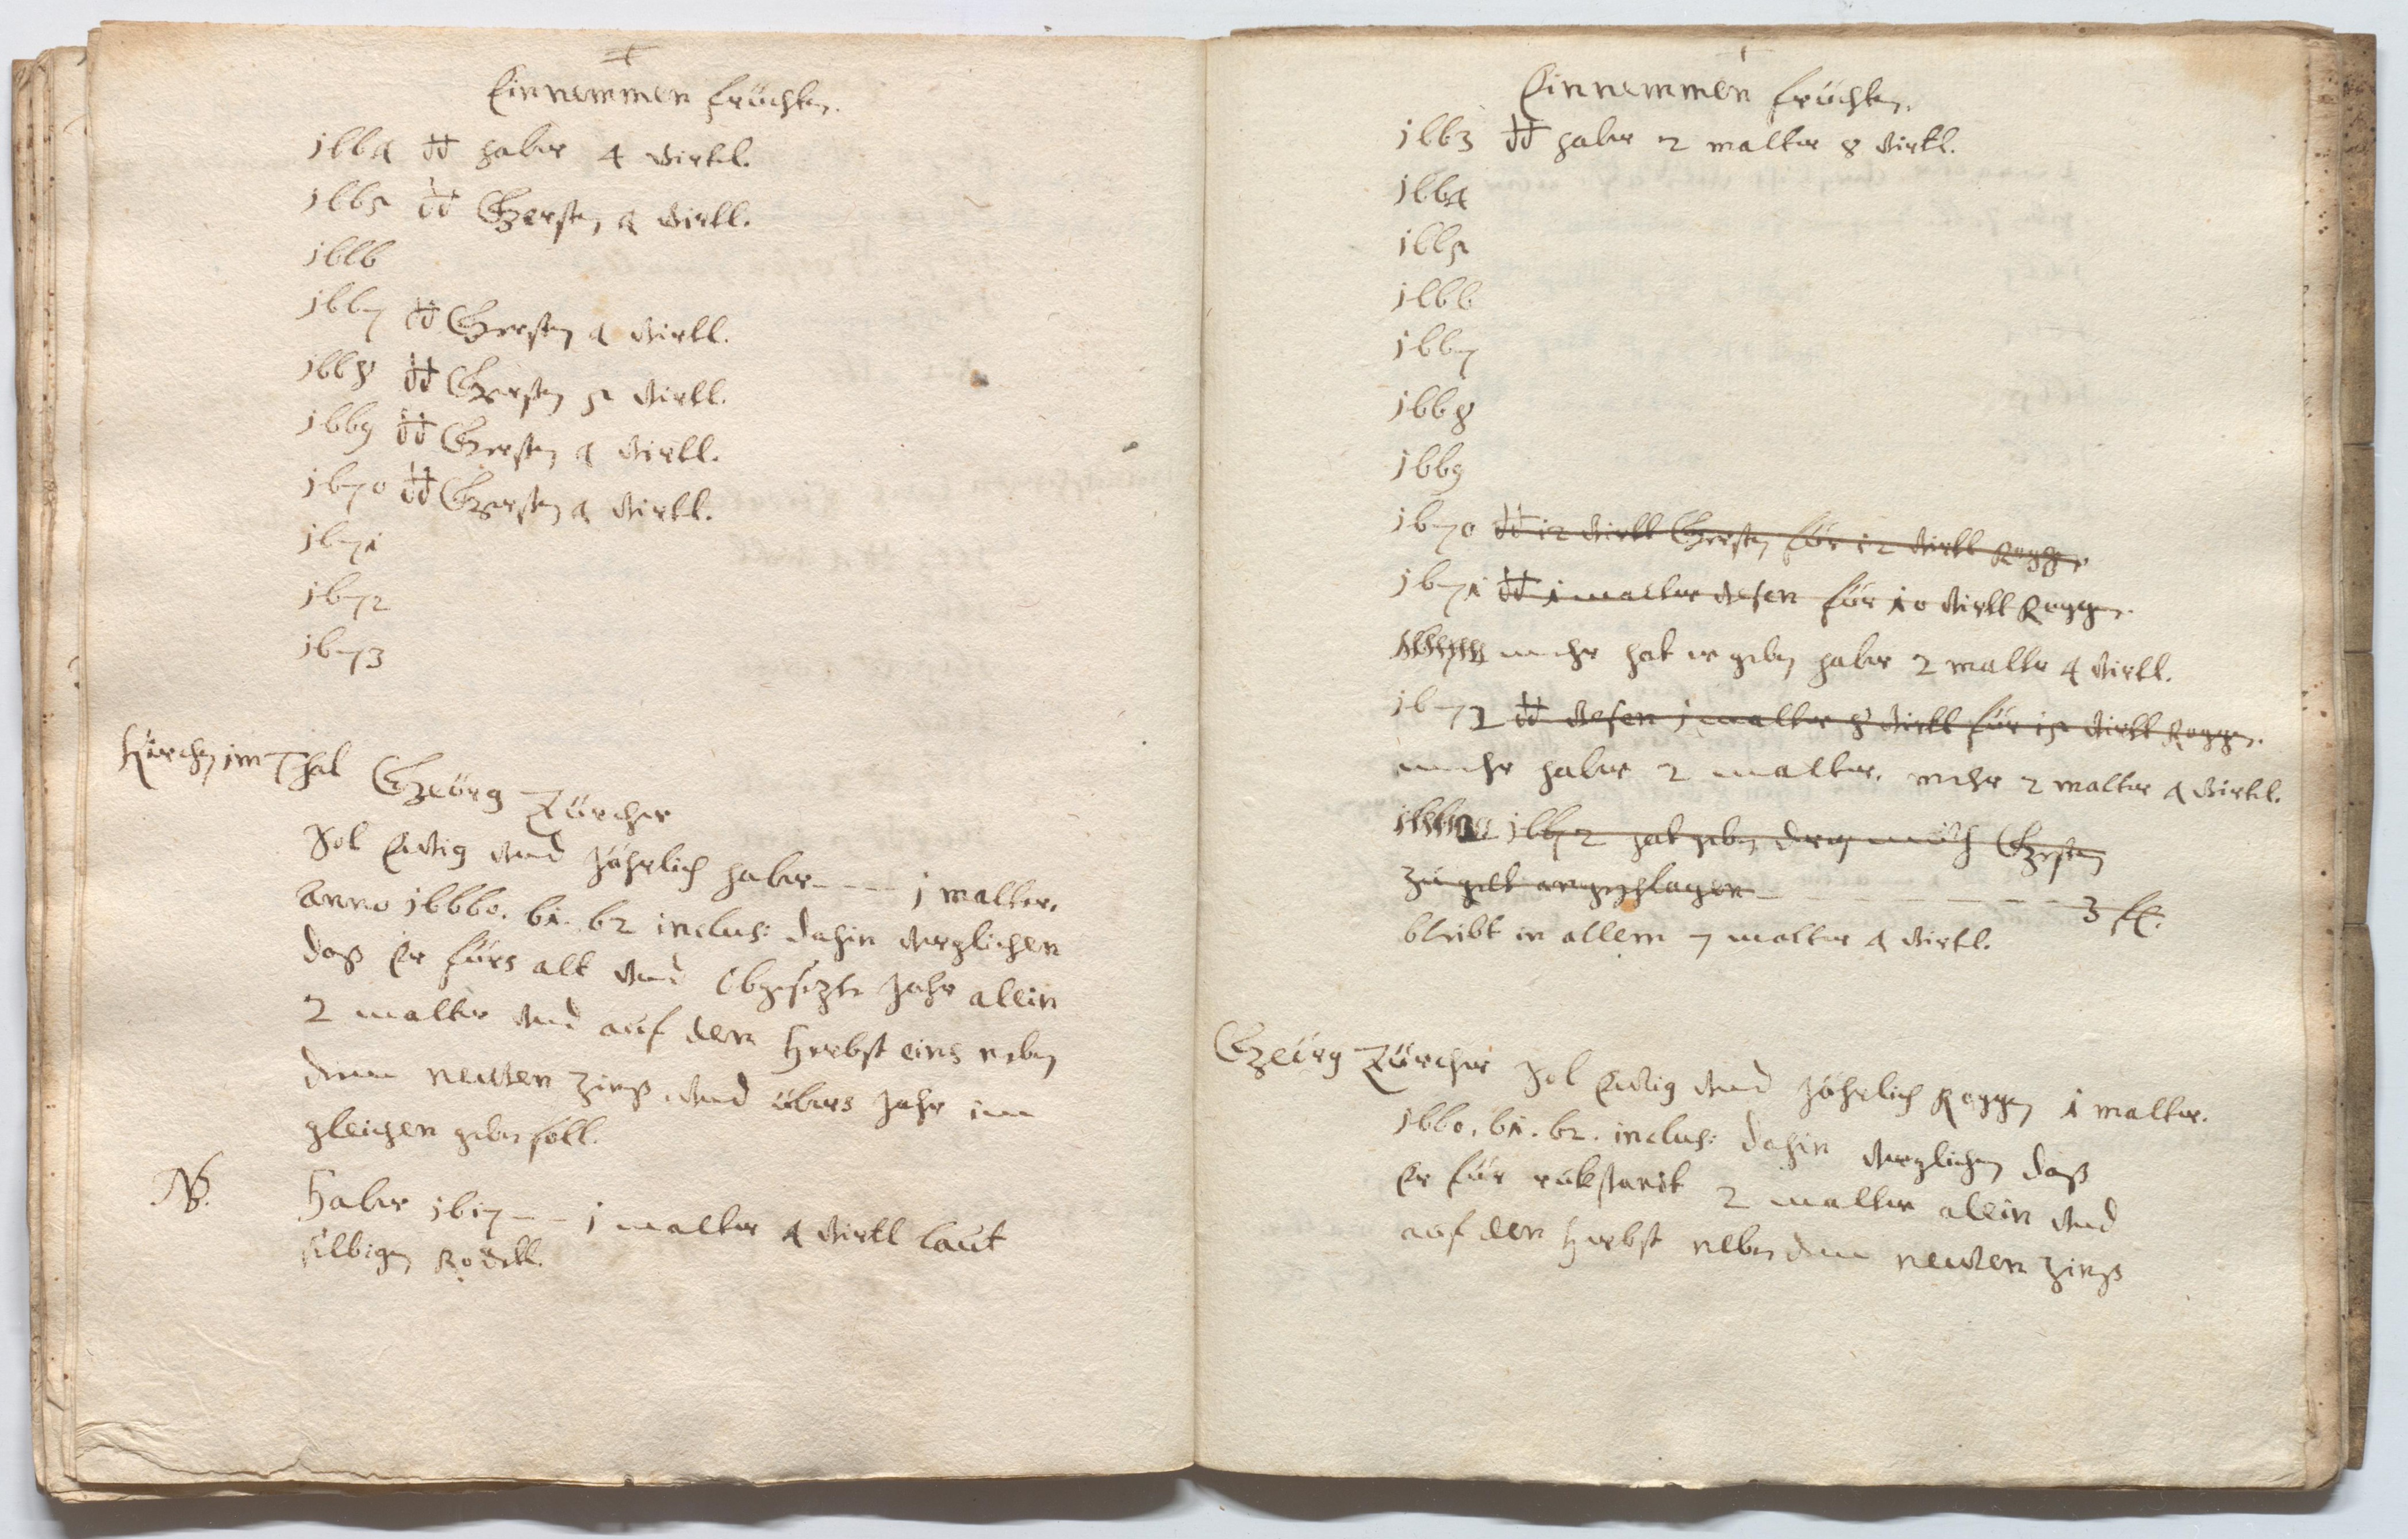 Einnemmen früchten.
1664 dd haber 4 viertl.
1665 dd Gersten 4 viertl.
1666
1667 dd Gersten 4 viertl.
1668 dd Gersten 5 viertl.
1669 dd Gersten 4 viertl.
1670 dd Gersten 4 viertl.
1671
1672
1673
Kirchen im Thal Geörg Zürcher
Sol Ewig vnd Jöhrlich haber---- 1 malter.
Anno 16660. 61. 62 inclus: dahin verglichen
daß Er fürs alt vnd Obgesezte Jahr allein
2 malter vnd auf den Herbst eins neben
dem neuwen Zinß vnd übers Jahr im
gleichen geben soll.
NB. Haber 1617-- 1 malter 4 viertl laut
selbigen Rodell.
Einnemmen früchten.
1663 dd haber 2 malter 8 viertl.
1664
1665
1666
1667
1668
1669
1670 dd 12 viertl Gersten für 12 viertl Roggen
1671 dd 1 malter vesen für 10 viertl Roggen.
mehr hat er geben haber 2 malter 4 viertl.
1672 dd vesen 1 malter 8 viertl für 15 viertl Roggen.
mehr haber 2 malter. mehr 2 malter 4 viertel.
1672 hat geben drey Gersten
zu gelt angeschlagen - - - - - - - 3 fl.
bleibt in allem 7 malter 4 viertl.
Geörg Zürcher Sol Ewig vnd Jöhrlich Roggen 1 malter.
1660. 61. 62. inclus: dahin verglichen daß
Er für rükstandt 2 malter allein vnd
auf den Herbst neben dem neuwen Zinß